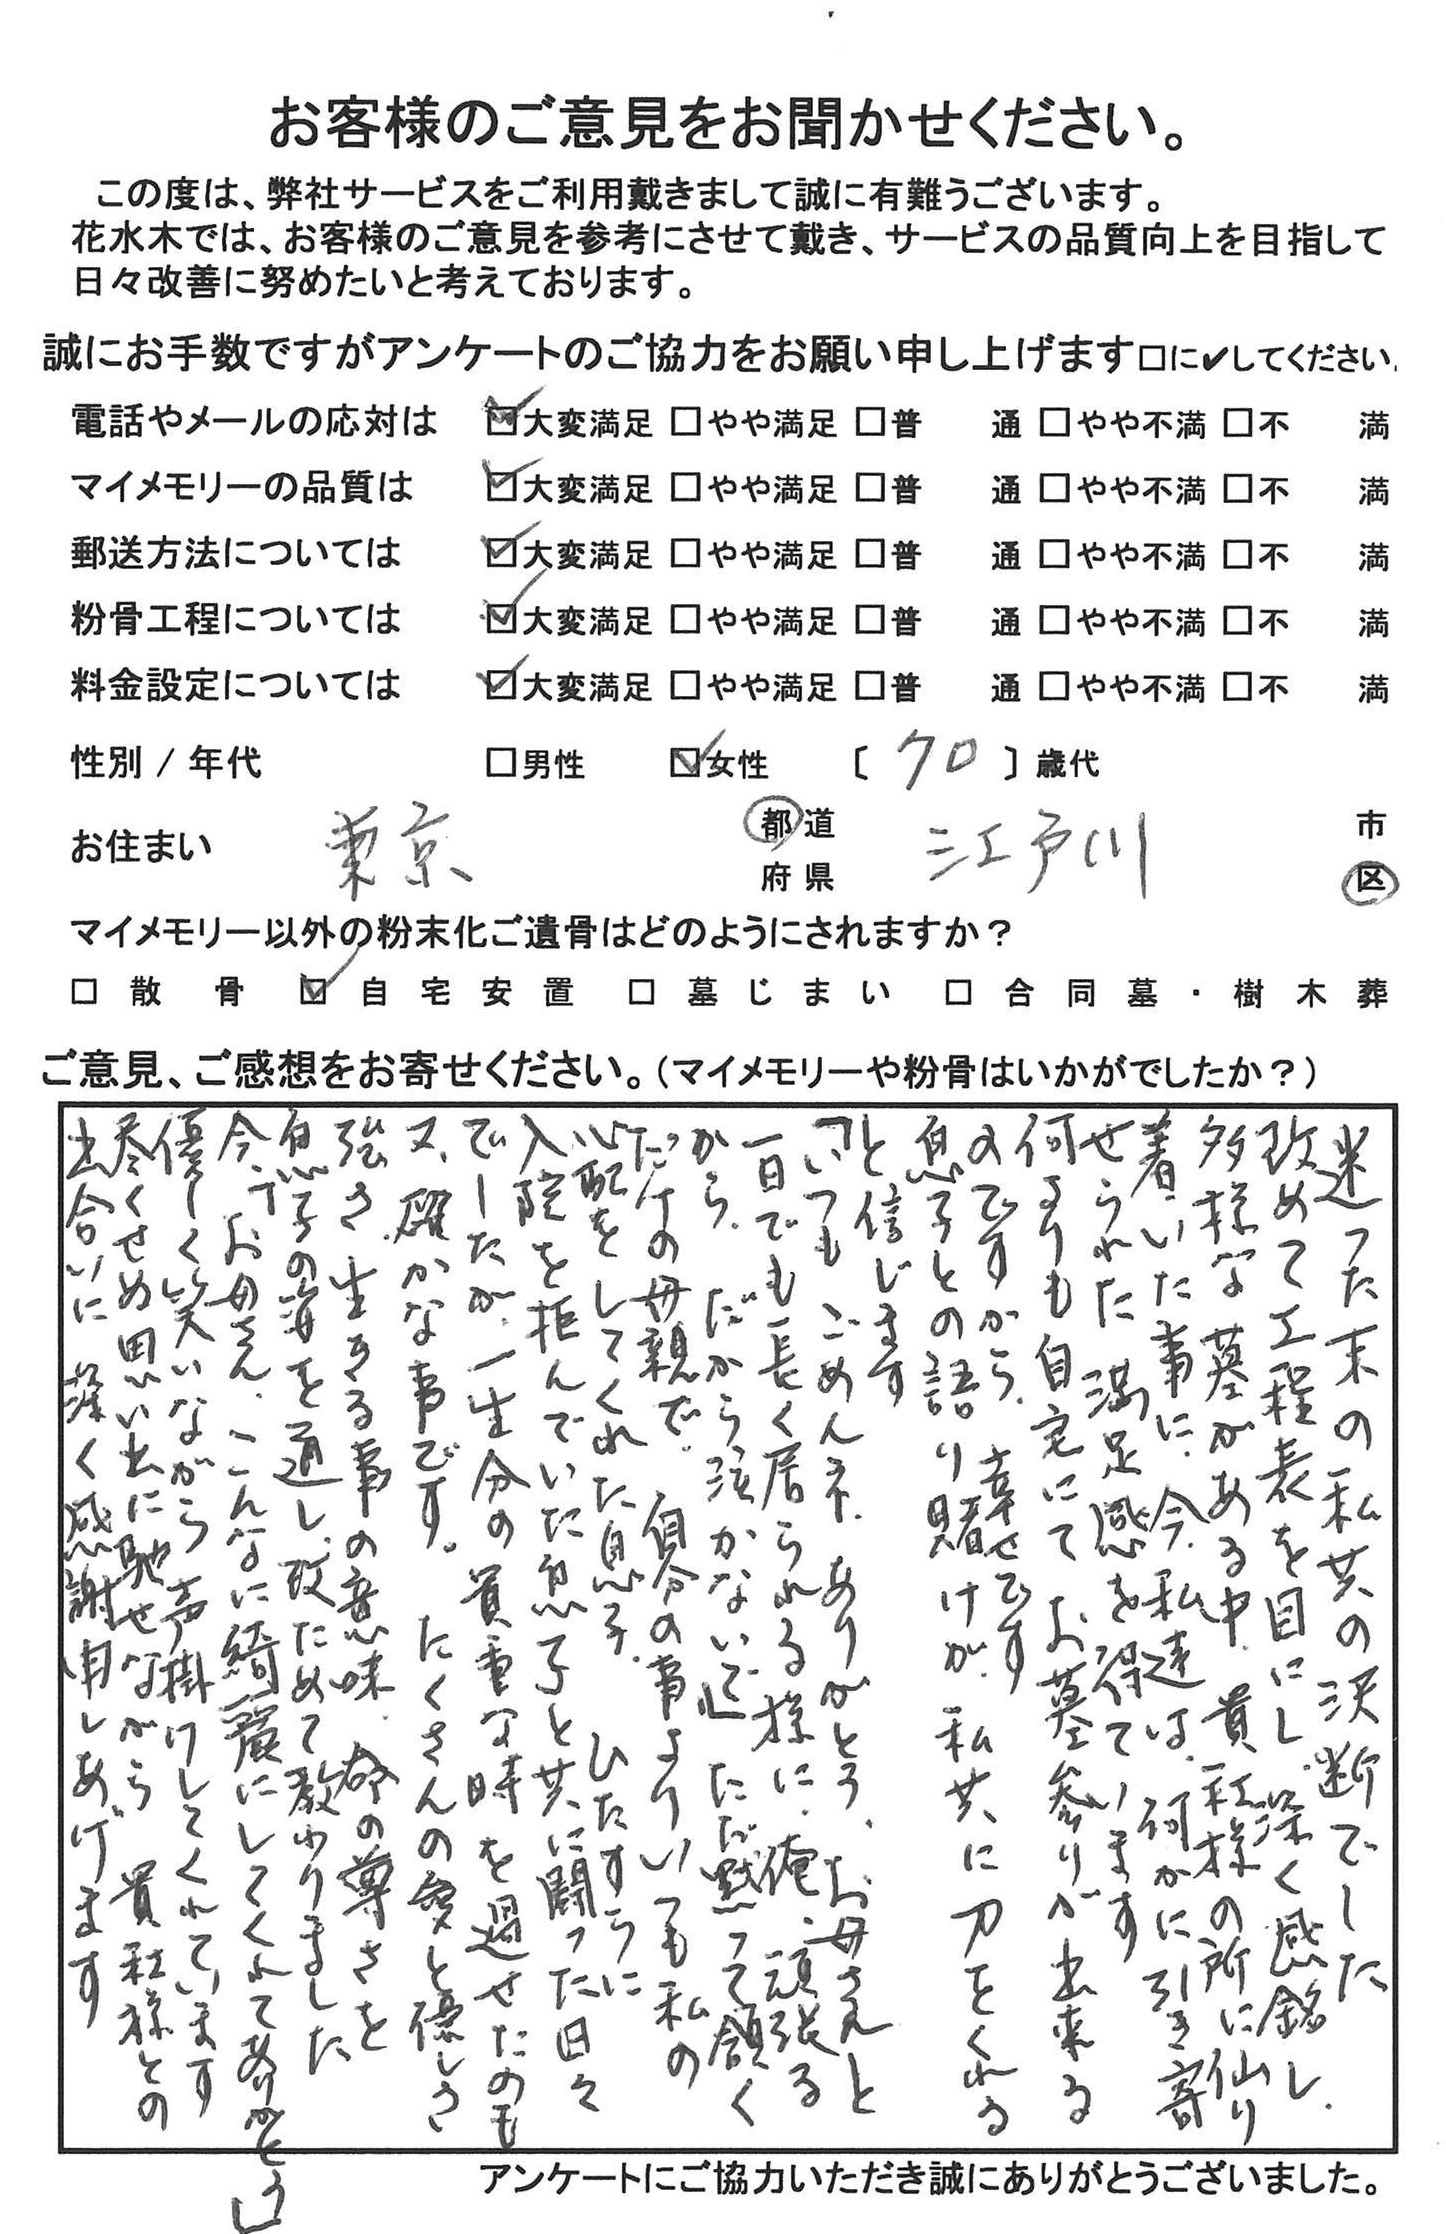 お客様のご意見をお聞かせください。
この度は、弊社サービスをご利用戴きまして誠に有難うございます。
花水木では、お客様のご意見を参考にさせて戴き、サービスの品質向上を目指して
日々改善に努めたいと考えております。
誠にお手数ですがアンケートのご協力をお願い申し上げます□に✔してください。
電話やメールの応対は ☑大変満足 □やや満足 □普 通 □やや不満 □不 満
マイメモリーの品質は ☑大変満足 □やや満足 □普 通 □やや不満 □不 満
郵送方法については ☑大変満足 □やや満足 □普 通 □やや不満 □不 満
粉骨工程については ☑大変満足 □やや満足 □普 通 □やや不満 □不 満
料金設定については ☑大変満足 □やや満足 □普 通 □やや不満 □不 満
性別 / 年代 □男性 ☑女性 〔 70 〕歳代
お住まい 東京 都道府県 江戸川 市区
マイメモリー以外の粉末化ご遺骨はどのようにされますか?
□ 散骨 ☑ 自宅安置 □ 墓じまい □ 合同墓・樹木葬
ご意見、ご感想をお寄せください。(マイメモリーや粉骨はいかがでしたか?)
迷った末の私共の決断でした
改めて工程表を目にし、深く感銘し、
多様な墓がある中、貴社様の所に
着いた事に、今、私達は、何かに引き寄
せられた 満足感を得ています
何よりも自宅にてお墓参りが出来る
のですから、幸せです
息子との語り賭けが、私共に力をくれる
と信じます
「いつも ごめんネ、ありがとう、お母さんと
一日でも長く居られる様に、俺、頑張る
から、だから泣かないで」ただ黙って頷く
だけの母親で、自分の事よりいつも私の
心配をしてくれた息子、ひたすらに
入院を拒んでいた息子と共に闘った日々
でしたが、一生分の貴重な時を過せたのも
又、確かな事です。たくさんの愛と優しさ
強さ、生きる事の意味、命の尊さを
息子の姿を通し、改ためて教わりました
今、「お母さん、こんなに綺麗にしてくれてありがとう」
優しく笑いながら声掛けしてくれています
尽くせぬ思い出に馳せながら 貴社様との
出合いに 深く感謝申しあげます
アンケートにご協力いただき誠にありがとうございました。